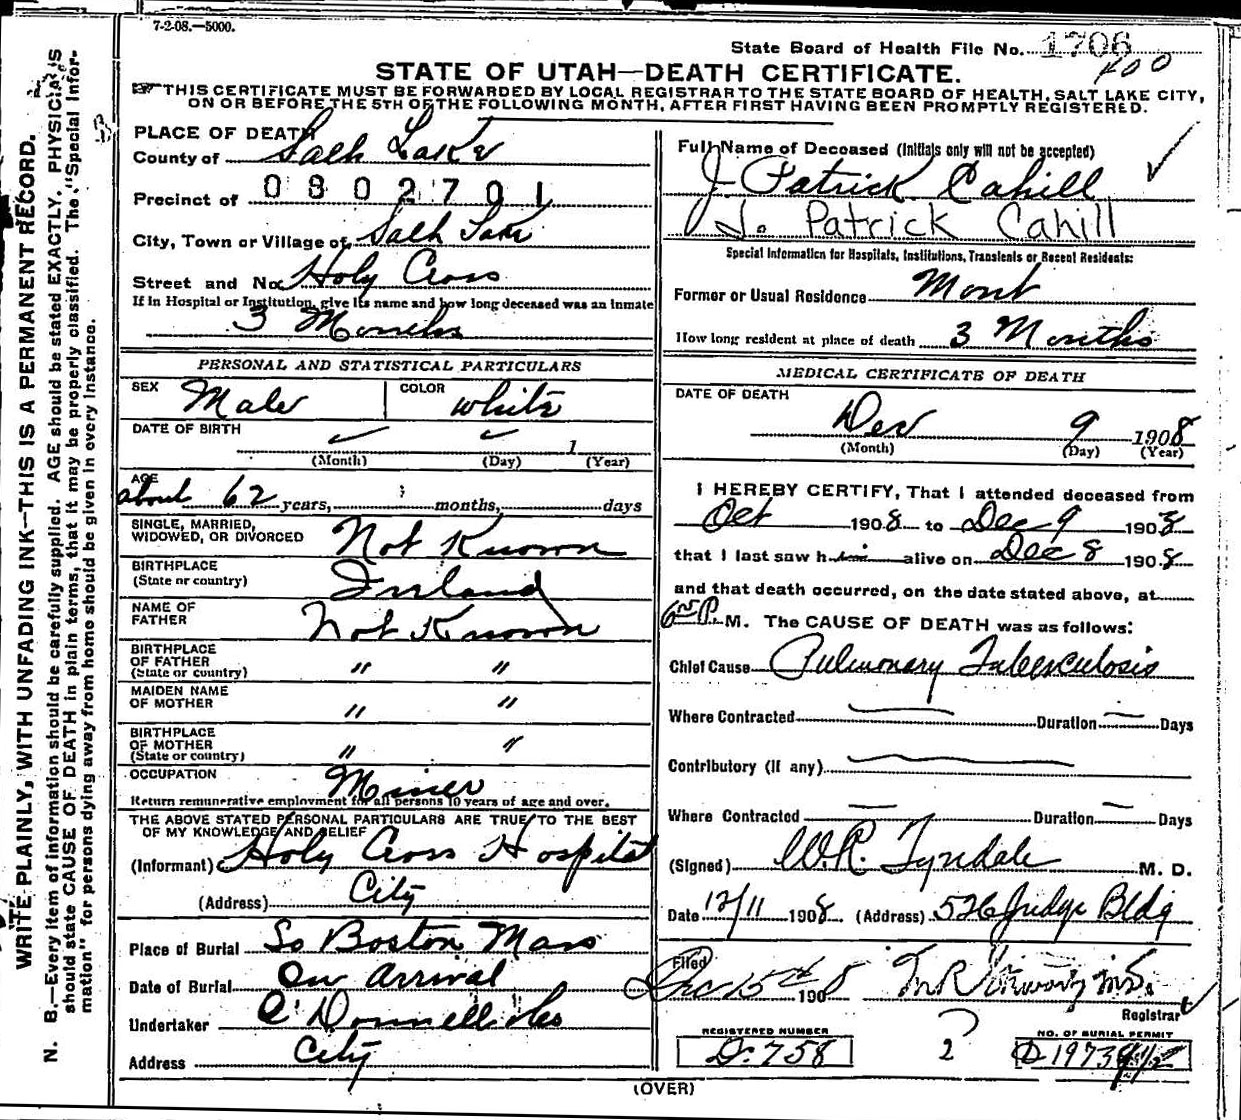 7-2-08.—5000.
State Board of Health File No. 1706
400
STATE OF UTAH—DEATH CERTIFICATE.
THIS CERTIFICATE MUST BE FORWARDED BY LOCAL REGISTRAR TO THE STATE BOARD OF HEALTH, SALT LAKE CITY,
ON OR BEFORE THE 5TH OF THE FOLLOWING MONTH, AFTER FIRST HAVING BEEN PROMPTLY REGISTERED.
WRITE PLAINLY, WITH UNFADING INK—THIS IS A PERMANENT RECORD.
N. B.—Every item of information should be carefully supplied. AGE should be stated EXACTLY. PHYSICIANS
should state CAUSE OF DEATH in plain terms, that it may be properly classified. The "Special Infor-
mation" for persons dying away from home should be given in every instance.
PLACE OF DEATH
County of Salt Lake
Precinct of 0802701
City, Town or Village of Salt Lake
Street and No. Holy Cross
If in Hospital or Institution, give its name and how long deceased was an inmate
3 Months
PERSONAL AND STATISTICAL PARTICULARS
SEX Male COLOR White
DATE OF BIRTH 1
(Month) (Day) (Year)
AGE
about 62 years, months, days
SINGLE, MARRIED,
WIDOWED, OR DIVORCED Not Known
BIRTHPLACE
(State or country) Ireland
NAME OF
FATHER Not Known
BIRTHPLACE
OF FATHER
(State or country) " "
MAIDEN NAME
OF MOTHER " "
BIRTHPLACE
OF MOTHER
(State or country) " "
OCCUPATION Miner
Return remunerative employment for all persons 10 years of age and over.
THE ABOVE STATED PERSONAL PARTICULARS ARE TRUE TO THE BEST
OF MY KNOWLEDGE AND BELIEF
(Informant) Holy Cross Hospital
(Address) City
Place of Burial So Boston Mass
Date of Burial On arrival
Undertaker O'Donnell &co
Address City
Full Name of Deceased (Initials only will not be accepted)
J Patrick Cahill
J. Patrick Cahill
Special Information for Hospitals, Institutions, Transients or Recent Residents:
Former or Usual Residence Mont
How long resident at place of death 3 Months
MEDICAL CERTIFICATE OF DEATH
DATE OF DEATH
Dec 9 1908
(Month) (Day) (Year)
I HEREBY CERTIFY, That I attended deceased from
Oct 1908 to Dec 9 1908
that I last saw him alive on Dec 8 1908
and that death occurred, on the date stated above, at
P. M. The CAUSE OF DEATH was as follows:
Chief Cause Pulmonary Tuberculosis
Where Contracted — Duration — Days
Contributory (if any) —
Where Contracted — Duration — Days
(Signed) W.R. Tyndale M. D.
Date 12/11 1908 (Address) 526 Judge Bldg
Filed
Dec 15th 1908
Registrar
REGISTERED NUMBER
D. 758
2
NO. OF BURIAL PERMIT
D 1973
(OVER)